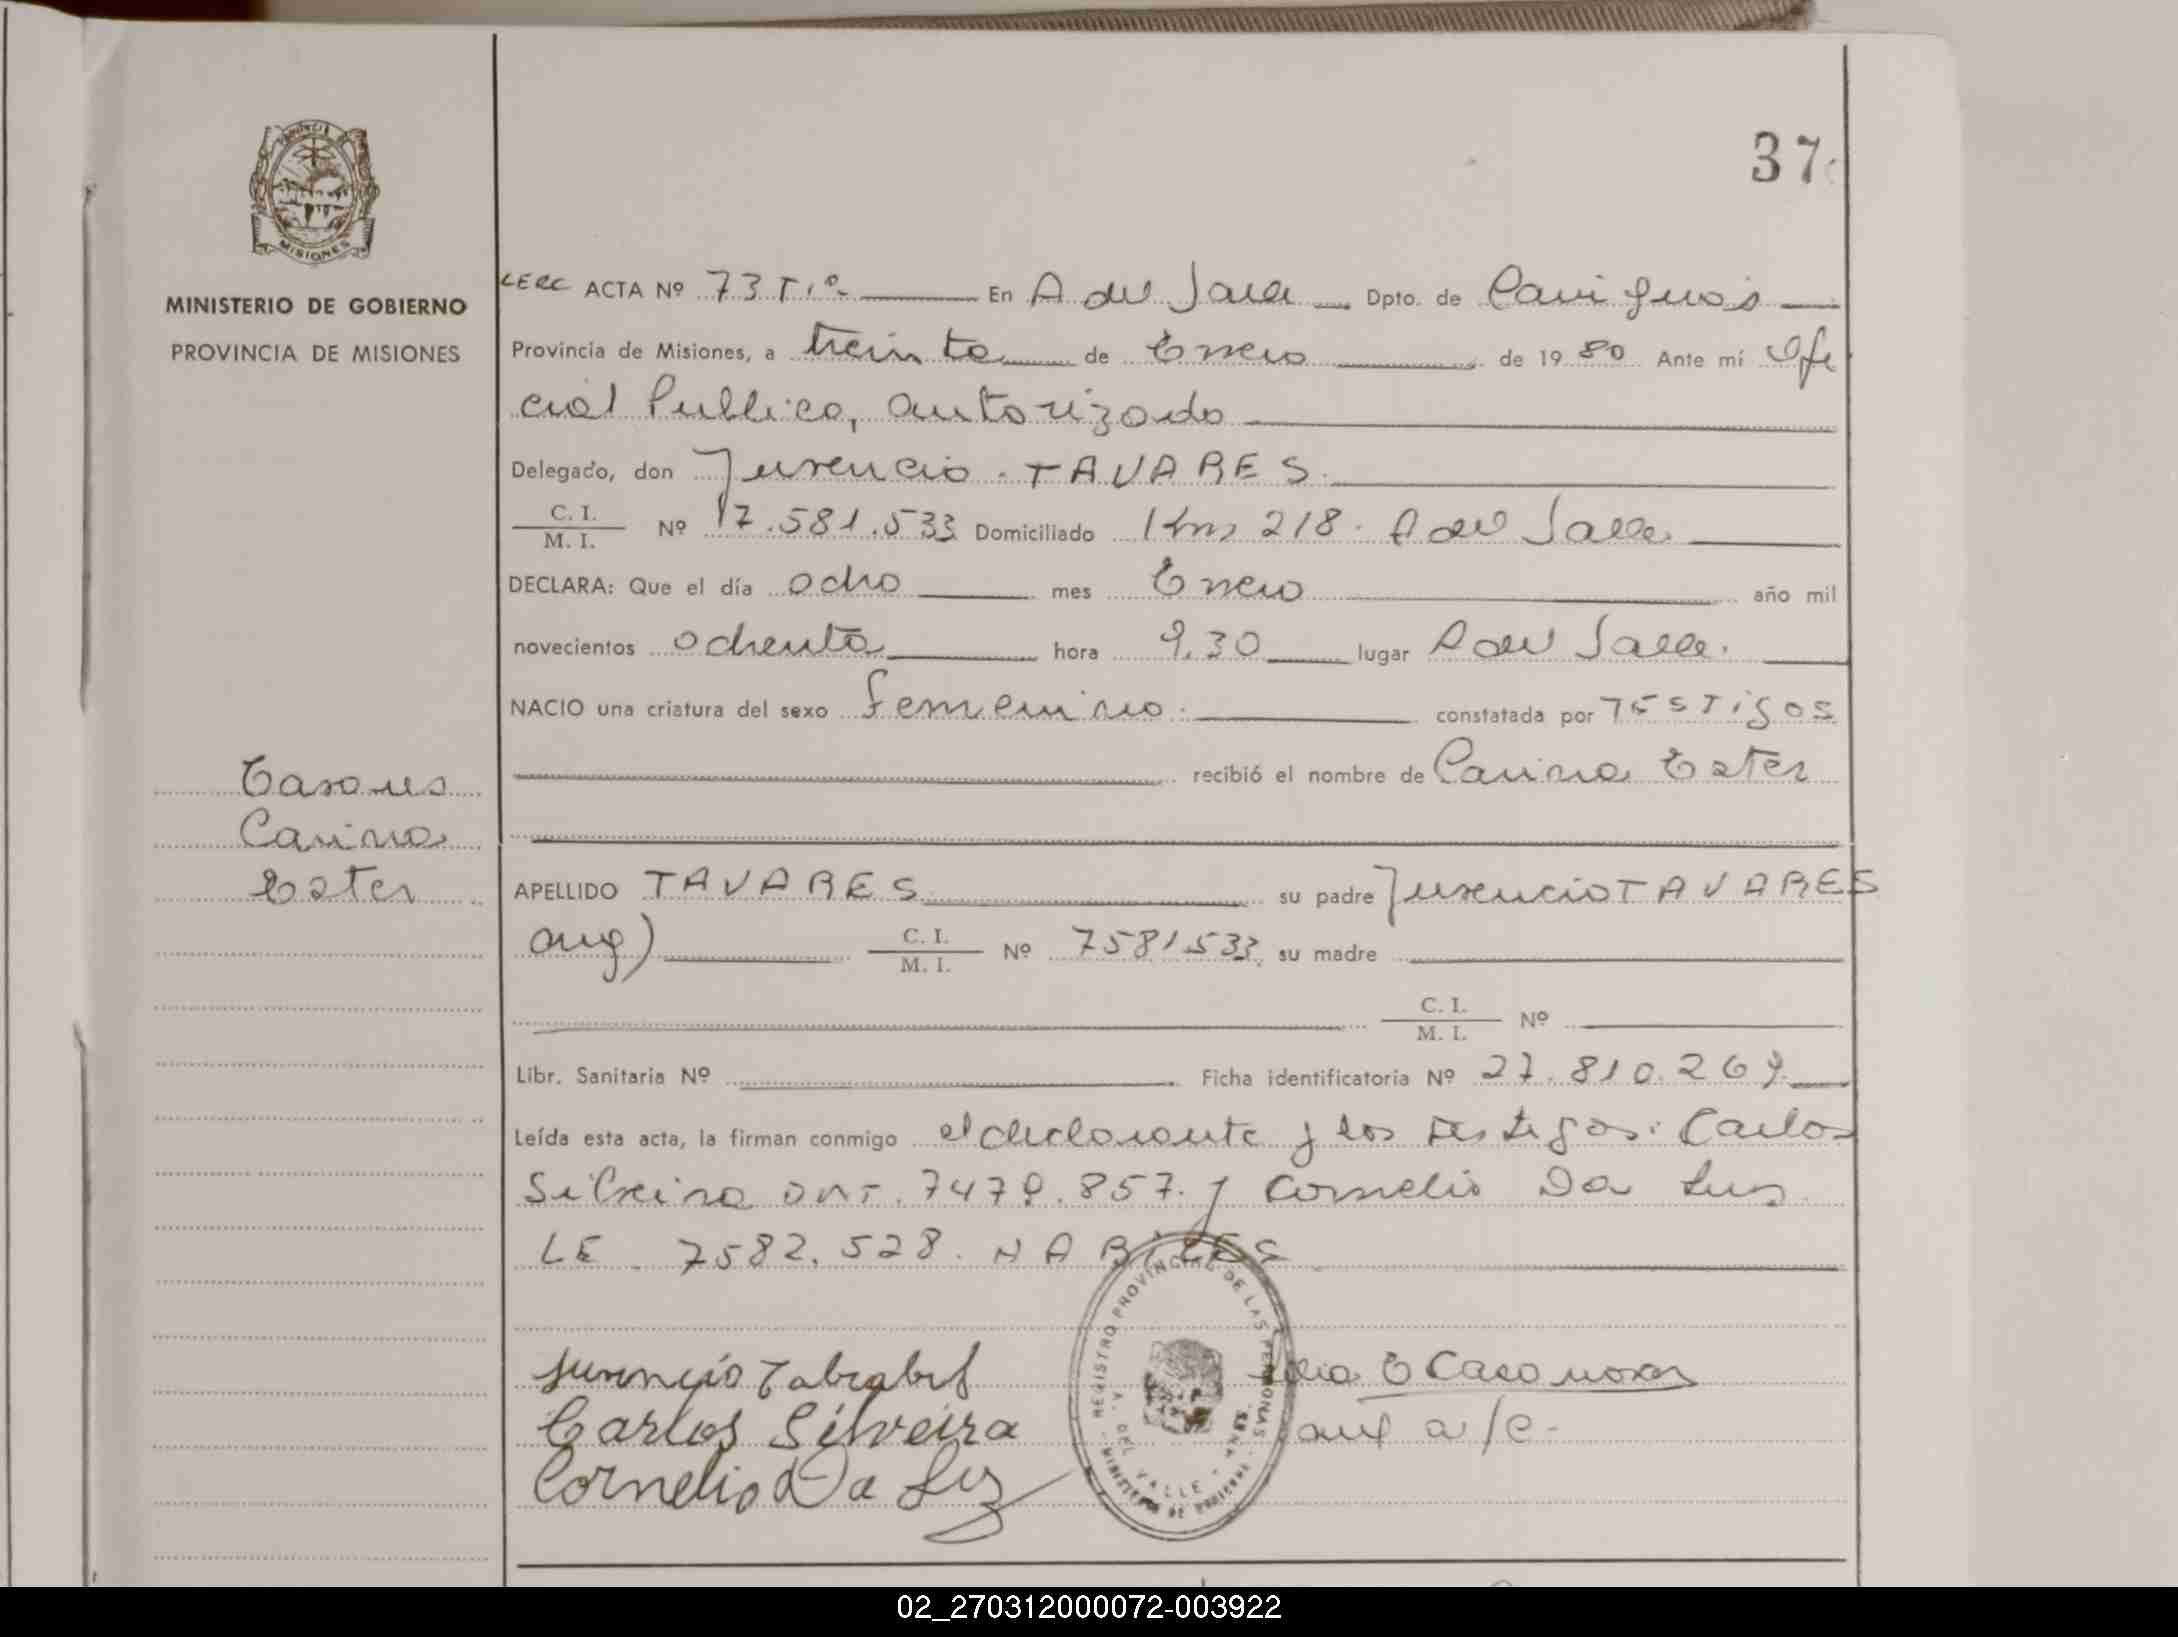 37
PROVINCIA
MISIONES
MINISTERIO DE GOBIERNO
PROVINCIA DE MISIONES
LERC ACTA Nº 73 T.1º En A del Valle Dpto. de Cainguás
Provincia de Misiones, a treinta de Enero de 1980 Ante mí Ofi
cial Publico, autorizado
Delegado, don Juvencio TAVARES
C. I.
M. I. Nº 7.581.533 Domiciliado Km 218. A del Valle
DECLARA: Que el día ocho mes Enero año mil
novecientos ochenta hora 9,30 lugar A del Valle.
NACIO una criatura del sexo femenino. constatada por TESTigos
recibió el nombre de Carina Ester
Tavares
Carina
Ester
APELLIDO TAVARES su padre Juvencio TAVARES
arg) C. I.
M. I. Nº 7581.533 su madre
C. I.
M. I. Nº
Libr. Sanitaria Nº Ficha identificatoria Nº 27.810.269
Leída esta acta, la firman conmigo el declarante y los testigos: Carlos
Silveira DNI. 7479.857. y Cornelio Da Luz
LE. 7582.528. HABILES
REGISTRO PROVINCIAL DE LAS PERSONAS
DEL VALLE
MINISTERIO DE GOBIERNO
Juvencio
Carlos Silveira
Cornelio Da Luz
E Casanova
aux a/c.
02_270312000072-003922